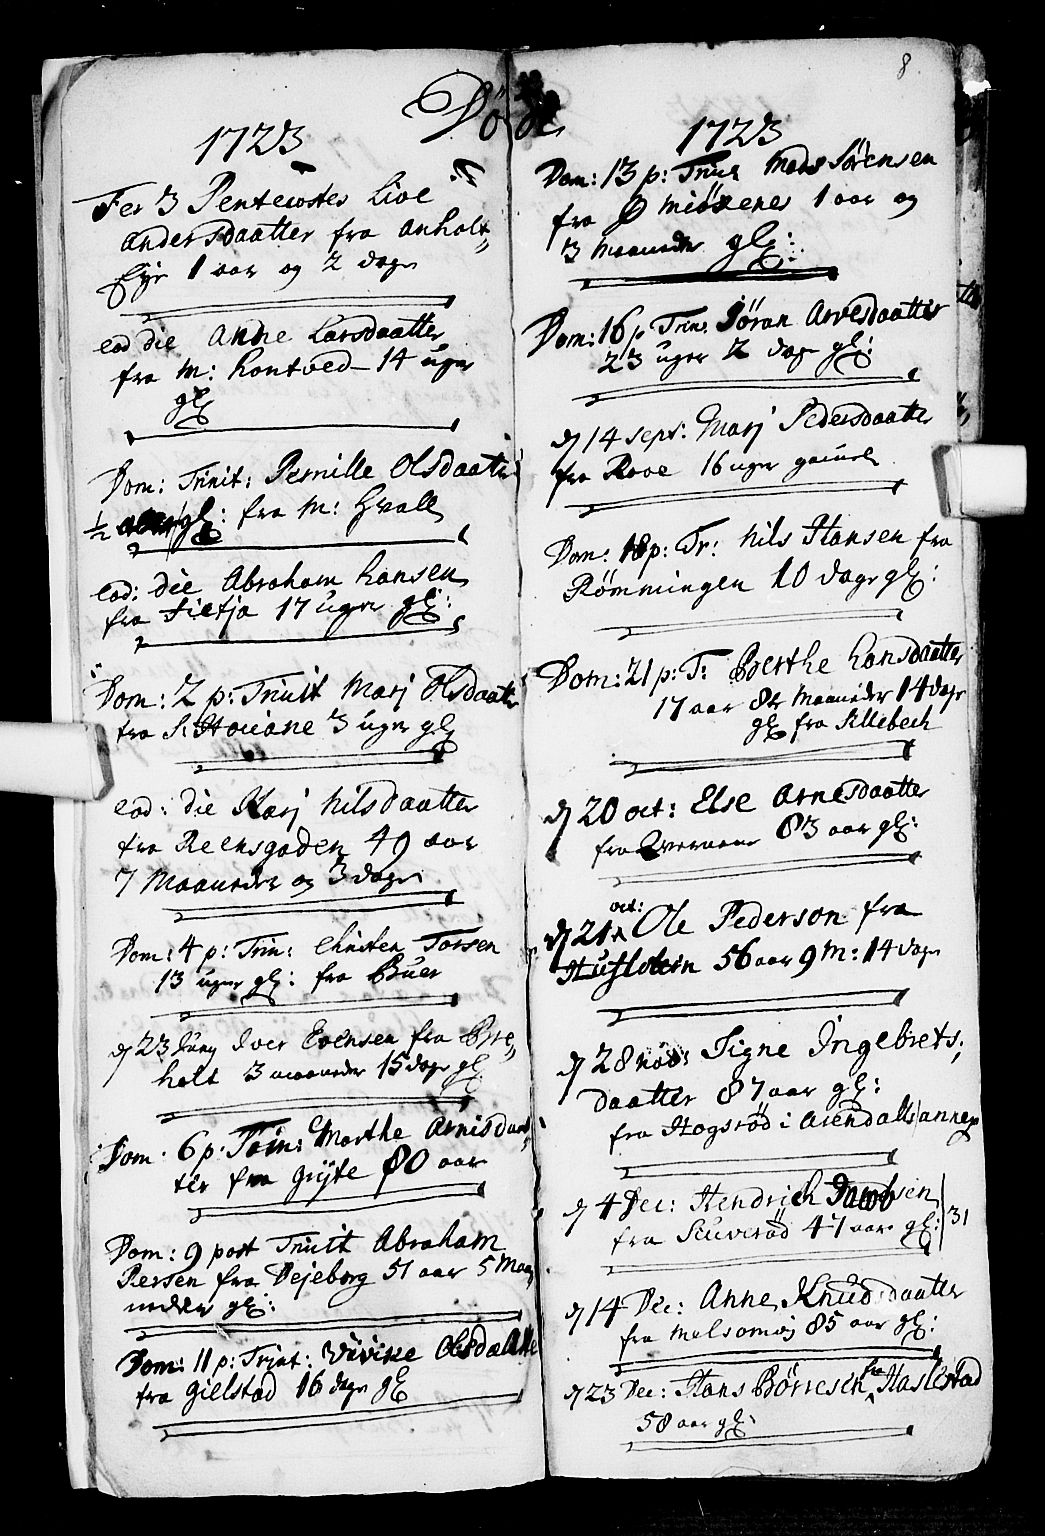 8
Døde
1723
Fer 3 Pentecostes Live
Andersdaatter fra Anholt„
Eye 1 aar og 2 dage
eod die Anne Larsdaatter
fra m: Hontved 14 uger
gl
Dom: Trinit: Pernille Olsdaatter
1/2 gl: fra m: Hvall
eod: die Abraham Hansen
fra Tietja 17 uger gl:
Dom: 2 p: Trinit Marj Olsdaatter
fra St: Houane 3 uger gl
eod: die Karj Nilsdaatter
fra Reensgaden 49 aar
7 Maaneder og 3 dage
Dom: 4 p: Trin: Christen Torsen
13 uger gl: fra Buer
d 23 Juny Iver Evensen fra Bre„
holt 3 maaneder 15 dage gl
Dom. 6 p: Trin: Marthe Arnisdaat„
ter fra Gryte 80 aar
Dom: 9 post Trinit Abraham
Persen fra Vejeborg 51 aar 5 Maa„
neder gl:
Dom: 11 p: Trinit: Vivike Olsdaatte
fra Gielstad 16 dage gl
1723
Dom: 13 p: Trinit Mads Sørensen
fra Ø Miøsenes 1 aar og
3 Maaneder gl:
Dom: 16 p Trin: Jøran Arvesdaatter
23 uger 2 dage gl:
d 14 sept: Marj Pedersdaatter
fra Rove 16 uger gamel
Dom: 18 p: Tr: Nils Hansen fra
Rømmingen 10 dage gl:
Dom: 21 p: T: Berthe Hansdaatter
17 aar 8 Maaneder 14 dage
gl fra Sillebech
d 20 oct: Else Arnesdaatter
fra 83 aar gl:
d 21 oct: Ole Pederson fra
56 aar 9 m: 14 dage
d 28 nov: Signe Ingebrets„
daatter 87 aar gl:
fra Hogsrød i Arendalls annex
d 4 Dec: Hendrich Jacobsen
fra Sluverød 47 aar gl: 31
d 14 Dec: Anne Knudsdaatter
fra Melsomvig 85 aar gl:
d 23 Dec: Hans Børresen fra Haslestad
58 aar gl: